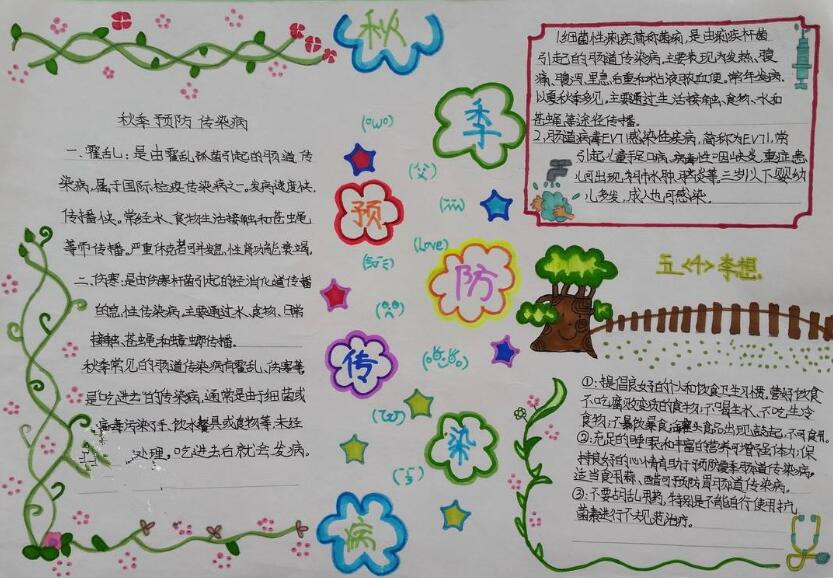 秋
季
预
防
传
染
病
秋季预防传染病
一、霍乱：是由霍乱弧菌引起的肠道传
染病，属于国际检疫传染病之一。发病速度快，
传播快。常经水、食物生活接触和苍蝇
等而传播。严重休克者可并发急性肾功能衰竭。
二、伤寒：是由伤寒杆菌引起的经消化道传播
的急性传染病，主要通过水、食物、日常
接触、苍蝇和蟑螂传播。
秋季常见的肠道传染病有霍乱、伤寒等
是"吃进去"的传染病，通常是由于细菌或
病毒污染了手、饮水餐具或食物等，未经
处理，吃进去后就会发病。
1.细菌性痢疾简称菌痢，是由痢疾杆菌
引起的肠道传染病，主要表现为发热、腹
痛、腹泻、里急后重和粘液脓血便。常年发病，
以夏秋季多见。主要通过生活接触、食物、水和
苍蝇等途径传播。
2.肠道病毒EV71感染性疾病，简称为EV71，常
引起儿童手足口病、病毒性咽峡炎，重症患
儿可出现
三岁以下婴幼
儿多发，成人也可感染。
五〈4〉李想
①：提倡良好的个人和饮食卫生习惯。营好饮食
不吃腐败变质的食物；不喝生水、不吃生冷
食物；不暴饮暴食；罐头食品出现鼓起，不可食用。
②：充足的睡眠和丰富的营养可增强体力；保
持良好的心情有助于预防夏季肠道传染病。
适当食用蒜、醋可预防胃肠道传染病。
③：不要胡乱用药，特别是不能自行使用抗
菌素进行不规范治疗。
(OωO)
(父)
(Love)